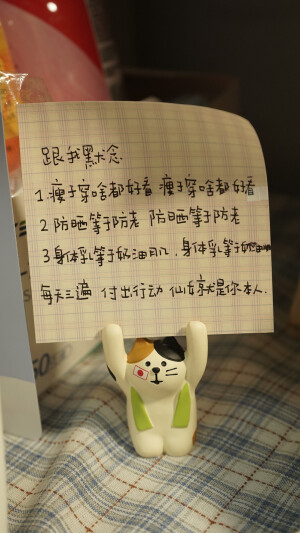 跟我默念
1.瘦子穿啥都好看 瘦子穿啥都好看
2 防晒等于防老 防晒等于防老
3身体乳等于奶油肌、身体乳等于奶油
每天三遍 付出行动 仙女就是你本人.
50